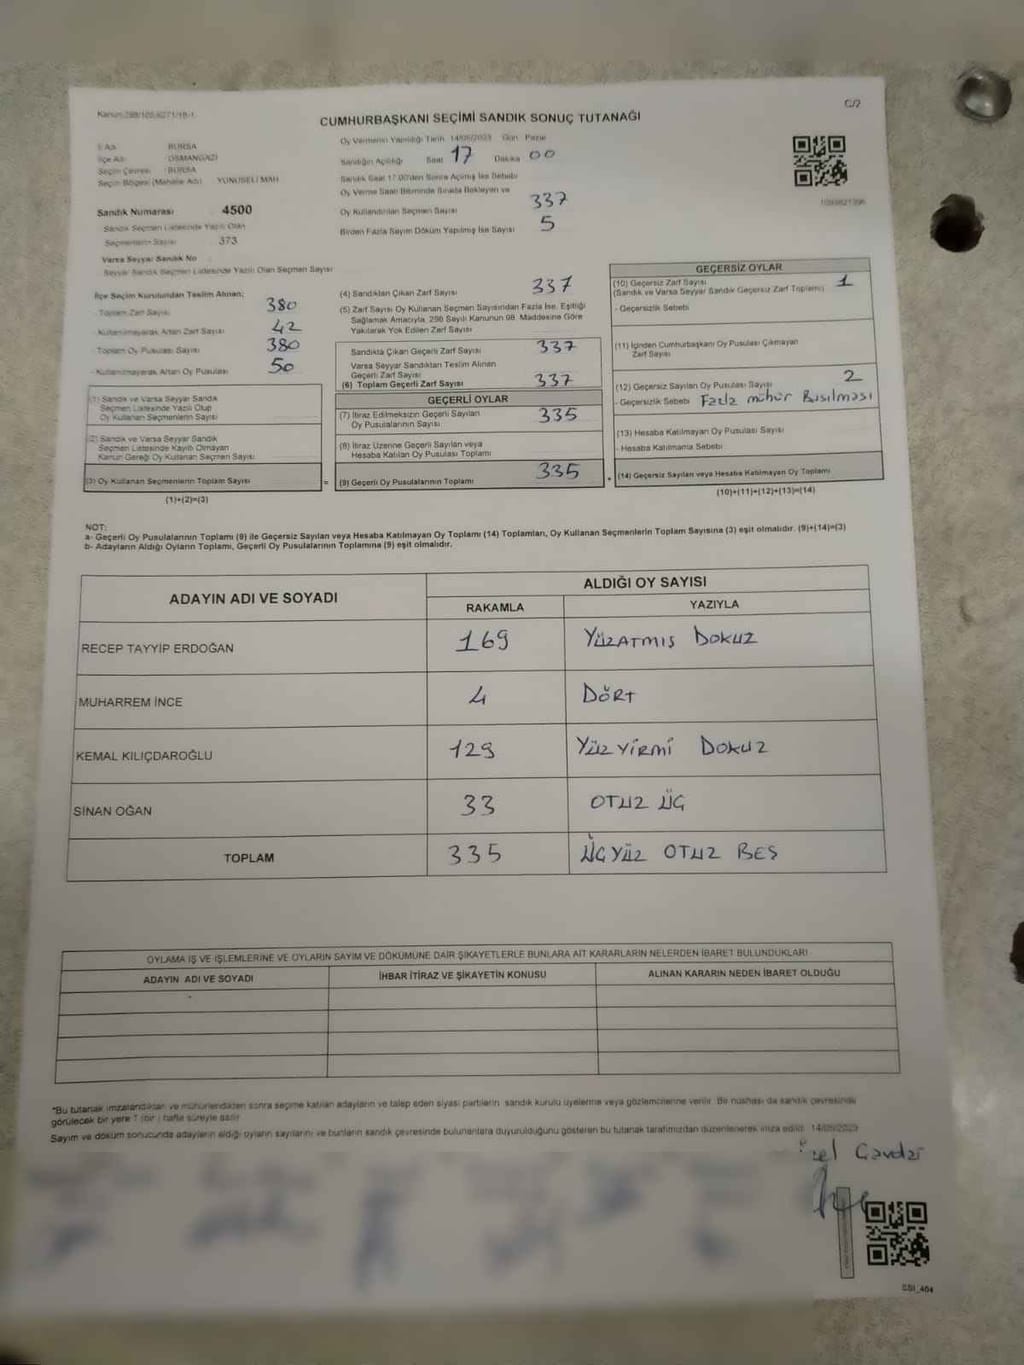 C/2
CUMHURBAŞKANI SEÇİMİ SANDIK SONUÇ TUTANAĞI
Oy Vermenin Yapıldığı Tarih 14/05/2023 Gün Pazar
İl Adı BURSA
İlçe Adı OSMANGAZİ
Seçim Çevresi BURSA
Seçim Bölgesi (Mahalle Adı) YUNUSELİ MAH.
Sandığın Açıldığı Saat 17 Dakika 00
Sandık Saat 17.00'den Sonra Açılmış İse Sebebi
Oy Verme Saati Bitiminde Sırada Bekleyen ve
Oy Kullandırılan Seçmen Sayısı 337
Birden Fazla Sayım Döküm Yapılmış İse Sayısı 5
Sandık Numarası 4500
Sandık Seçmen Listesinde Yazılı Olan
Seçmenlerin Sayısı 373
Varsa Seyyar Sandık No
Seyyar Sandık Seçmen Listesinde Yazılı Olan Seçmen Sayısı
İlçe Seçim Kurulundan Teslim Alınan;
Toplam Zarf Sayısı 380
Kullanılmayarak Artan Zarf Sayısı 42
Toplam Oy Pusulası Sayısı 380
Kullanılmayarak Artan Oy Pusulası 50
(1) Sandık ve Varsa Seyyar Sandık
Seçmen Listesinde Yazılı Olup
Oy Kullanan Seçmenlerin Sayısı
(2) Sandık ve Varsa Seyyar Sandık
Seçmen Listesinde Kayıtlı Olmayan
Kanun Gereği Oy Kullanan Seçmen Sayısı
(3) Oy Kullanan Seçmenlerin Toplam Sayısı
(1)+(2)=(3)
(4) Sandıktan Çıkan Zarf Sayısı 337
(5) Zarf Sayısı Oy Kullanan Seçmen Sayısından Fazla İse, Eşitliği
Sağlamak Amacıyla, 298 Sayılı Kanunun 98. Maddesine Göre
Yakılarak Yok Edilen Zarf Sayısı
Sandıkta Çıkan Geçerli Zarf Sayısı 337
Varsa Seyyar Sandıktan Teslim Alınan
Geçerli Zarf Sayısı
(6) Toplam Geçerli Zarf Sayısı 337
GEÇERLİ OYLAR
(7) İtiraz Edilmeksizin Geçerli Sayılan
Oy Pusulalarının Sayısı 335
(8) İtiraz Üzerine Geçerli Sayılan veya
Hesaba Katılan Oy Pusulası Toplamı
= (9) Geçerli Oy Pusulalarının Toplamı 335
GEÇERSİZ OYLAR
(10) Geçersiz Zarf Sayısı 1
(Sandık ve Varsa Seyyar Sandık Geçersiz Zarf Toplamı)
- Geçersizlik Sebebi
(11) İçinden Cumhurbaşkanı Oy Pusulası Çıkmayan
Zarf Sayısı
(12) Geçersiz Sayılan Oy Pusulası Sayısı 2
- Geçersizlik Sebebi Fazla mühür Basılması
(13) Hesaba Katılmayan Oy Pusulası Sayısı
- Hesaba Katılmama Sebebi
+ (14) Geçersiz Sayılan veya Hesaba Katılmayan Oy Toplamı
(10)+(11)+(12)+(13)=(14)
NOT:
a- Geçerli Oy Pusulalarının Toplamı (9) ile Geçersiz Sayılan veya Hesaba Katılmayan Oy Toplamı (14) Toplamları, Oy Kullanan Seçmenlerin Toplam Sayısına (3) eşit olmalıdır. (9)+(14)=(3)
b- Adayların Aldığı Oyların Toplamı, Geçerli Oy Pusulalarının Toplamına (9) eşit olmalıdır.
ADAYIN ADI VE SOYADI
ALDIĞI OY SAYISI
RAKAMLA YAZIYLA
RECEP TAYYİP ERDOĞAN 169 YÜZATMIS DOKUZ
MUHARREM İNCE 4 DÖRT
KEMAL KILIÇDAROĞLU 129 YÜZ YİRMİ DOKUZ
SİNAN OĞAN 33 OTUZ ÜÇ
TOPLAM 335 ÜÇ YÜZ OTUZ BES
OYLAMA İŞ VE İŞLEMLERİNE VE OYLARIN SAYIM VE DÖKÜMÜNE DAİR ŞİKAYETLERLE BUNLARA AİT KARARLARIN NELERDEN İBARET BULUNDUKLARI
ADAYIN ADI VE SOYADI İHBAR İTİRAZ VE ŞİKAYETİN KONUSU ALINAN KARARIN NEDEN İBARET OLDUĞU
*Bu tutanak imzalandıktan ve mühürlendikten sonra seçime katılan adayların ve talep eden siyasi partilerin sandık kurulu üyelerine veya gözlemcilerine verilir. Bir nüshası da sandık çevresinde
görülecek bir yere 1 (bir) hafta süreyle asılır.
Sayım ve döküm sonucunda adayların aldığı oyların sayılarını ve bunların sandık çevresinde bulunanlara duyurulduğunu gösteren bu tutanak tarafımızdan düzenlenerek imza edildi. 14/05/2023